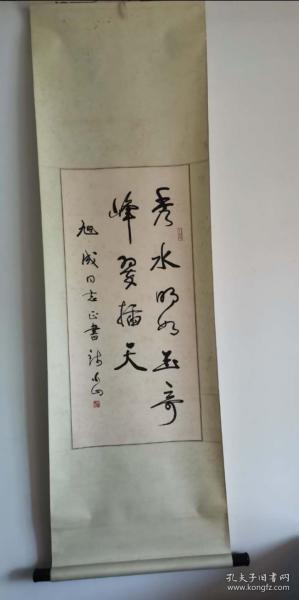 秀水明如玉奇
峰翠插天
旭成同志正书
孔夫子旧书网
www.kongfz.com